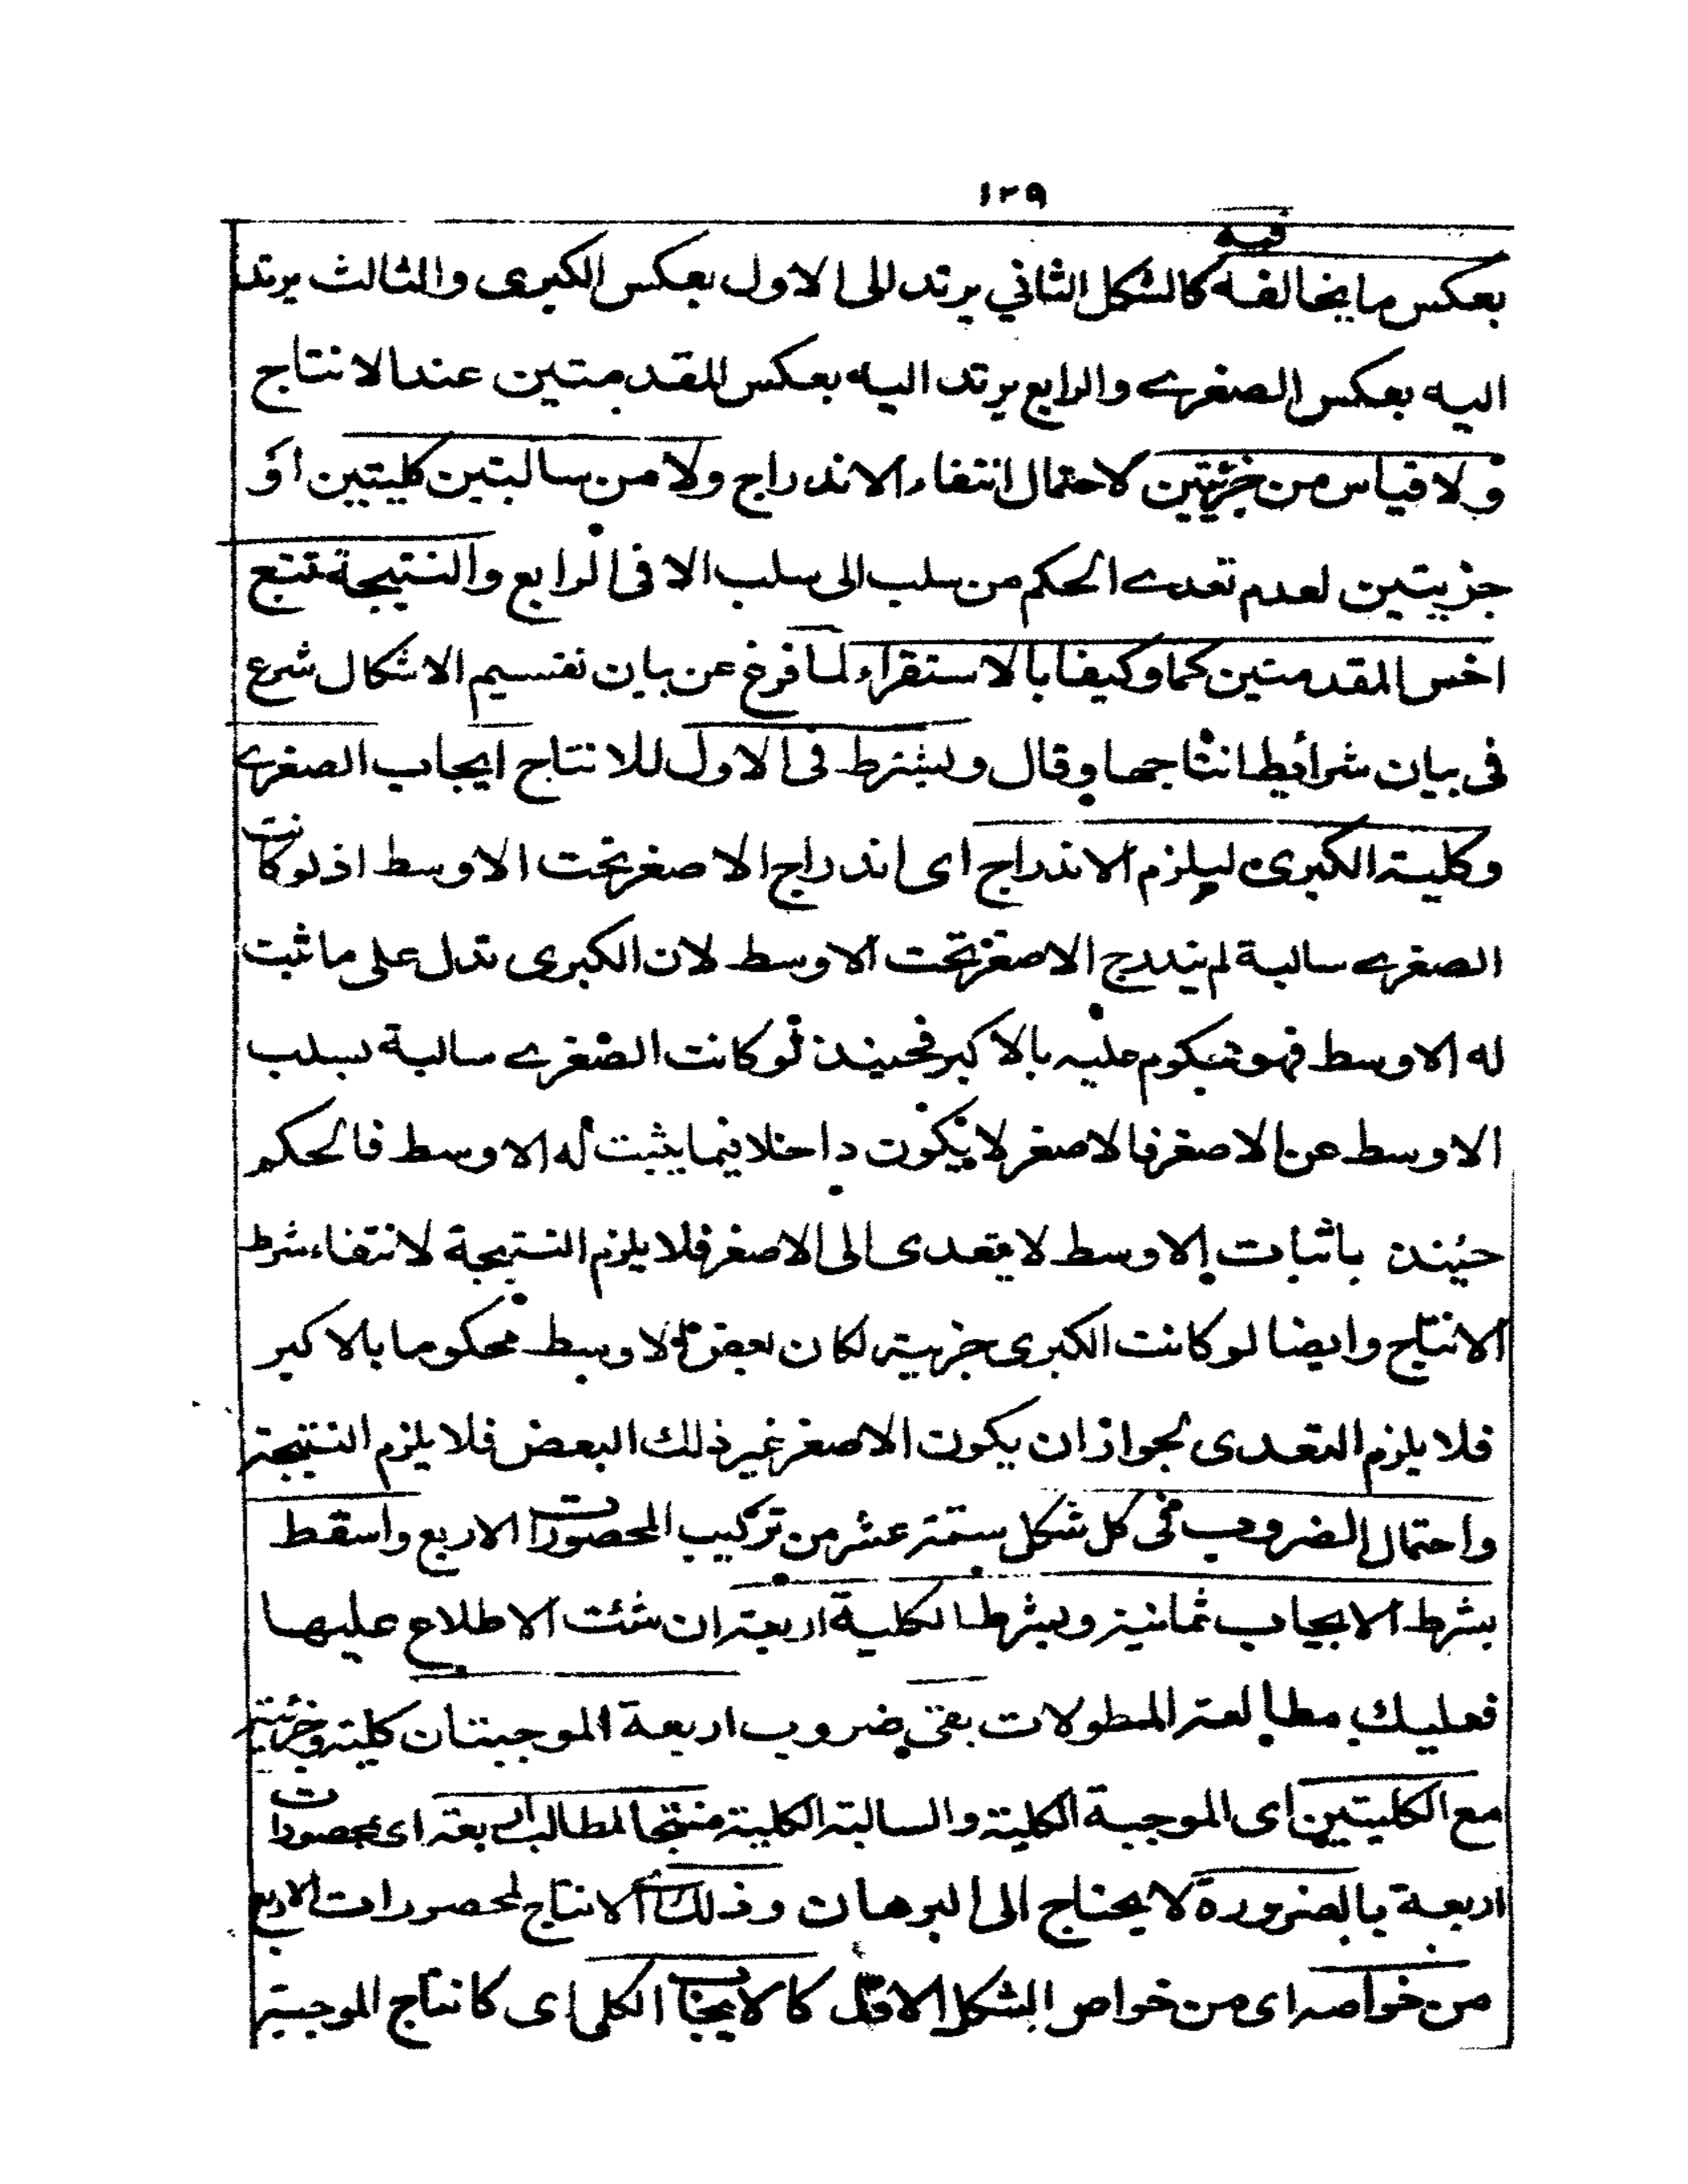 ١٢٩
فيه
بعكس ما يخالفه كالشكل الثاني يرتد الى الاول بعكس الكبرى والثالث يرتد
اليه بعكس الصغرے والرابع يرتد اليه بعكس المقدمتين عند الانتاج
و لا قياس من جزئيتين لاحتمال انتفاء الاندراج ولا من سالبتين كليتين او
جزئيتين لعدم تعدے الحكم من سلب الى سلب الا فى الرابع والنتيجة تتبع
اخس المقدمتين كما وكيفا بالاستقراء لما فرغ عن بيان تقسيم الاشكال شرع
فى بيان شرائط انتاجها وقال ويشترط فى الاول للانتاج ايجاب الصغرے
وكلية الكبرى ليلزم الاندراج اى اندراج الاصغر تحت الاوسط اذ لو كانت
الصغرے سالبة لم يندرج الاصغر تحت الاوسط لان الكبرى تدل على ما ثبت
له الاوسط فهو محكوم عليه بالاكبر فحينئذ لو كانت الصغرے سالبة بسلب
الاوسط عن الاصغر فالاصغر لا يكون داخلا فيما يثبت له الاوسط فالحكم
حينئذ باثبات الاوسط لا يتعدى الى الاصغر فلا يلزم النتيجة لانتفاء شرط
الانتاج وايضا لو كانت الكبرى جزئية لكان بعض الاوسط محكوما بالاكبر
فلا يلزم التعدى لجواز ان يكون الاصغر غير ذلك البعض فلا يلزم النتيجة
واحتمال الضروب فى كل شكل ستة عشر من تركيب المحصورات الاربع واسقط
بشرط الايجاب ثمانية وبشرط الكلية اربعة ان شئت الاطلاع عليها
فعليك مطالعة المطولات بقى ضروب اربعة الموجبتان كلية وجزئية
مع الكليتين اى الموجبة الكلية والسالبة الكلية منتجا لمطالب اربعة اى محصورات
اربعة بالضرورة لا يحتاج الى البرهان وذلك اى الانتاج لمحصورات الاربع
من خواصه اى من خواص الشكل الاول كالايجاب الكلى اى كانتاج الموجبة